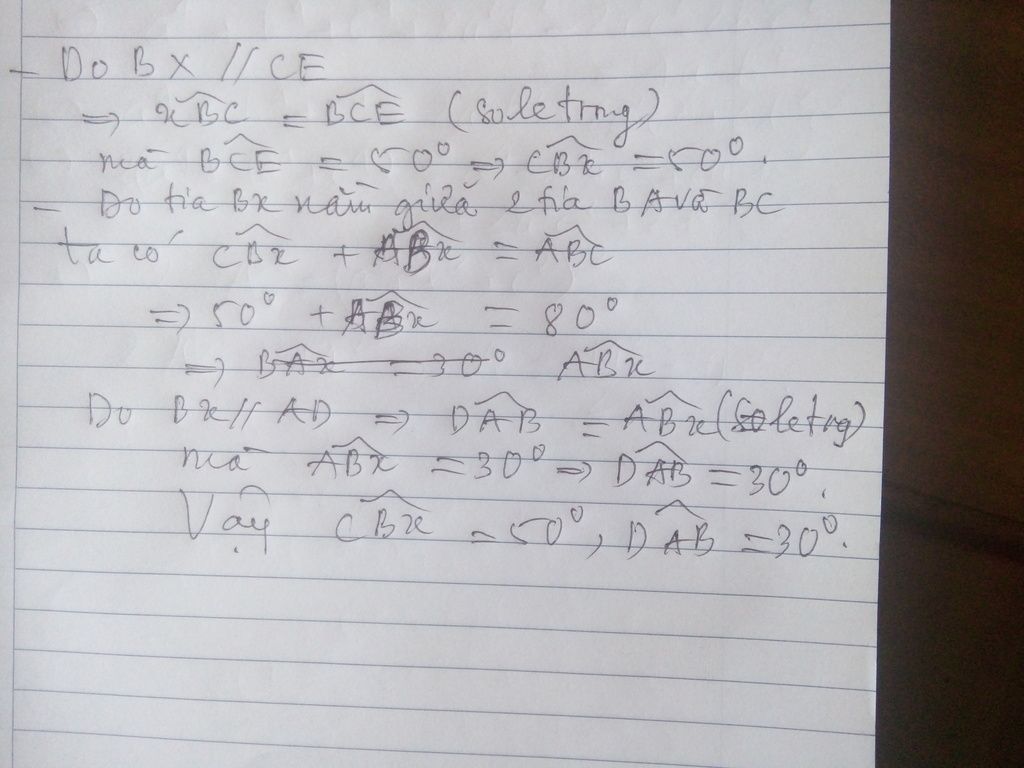 - Do BX // CE
=> xBC = BCE (so le trong)
mà BCE = 50° => CBx = 50°.
- Do tia Bx nằm giữa 2 tia BA và BC
ta có CBx + ABx = ABC
=> 50° + ABx = 80°
=> BAx = 30° ABx
Do Bx // AD => DAB = ABx (so le trg)
mà ABx = 30° => DAB = 30°.
Vậy CBx = 50°, DAB = 30°.